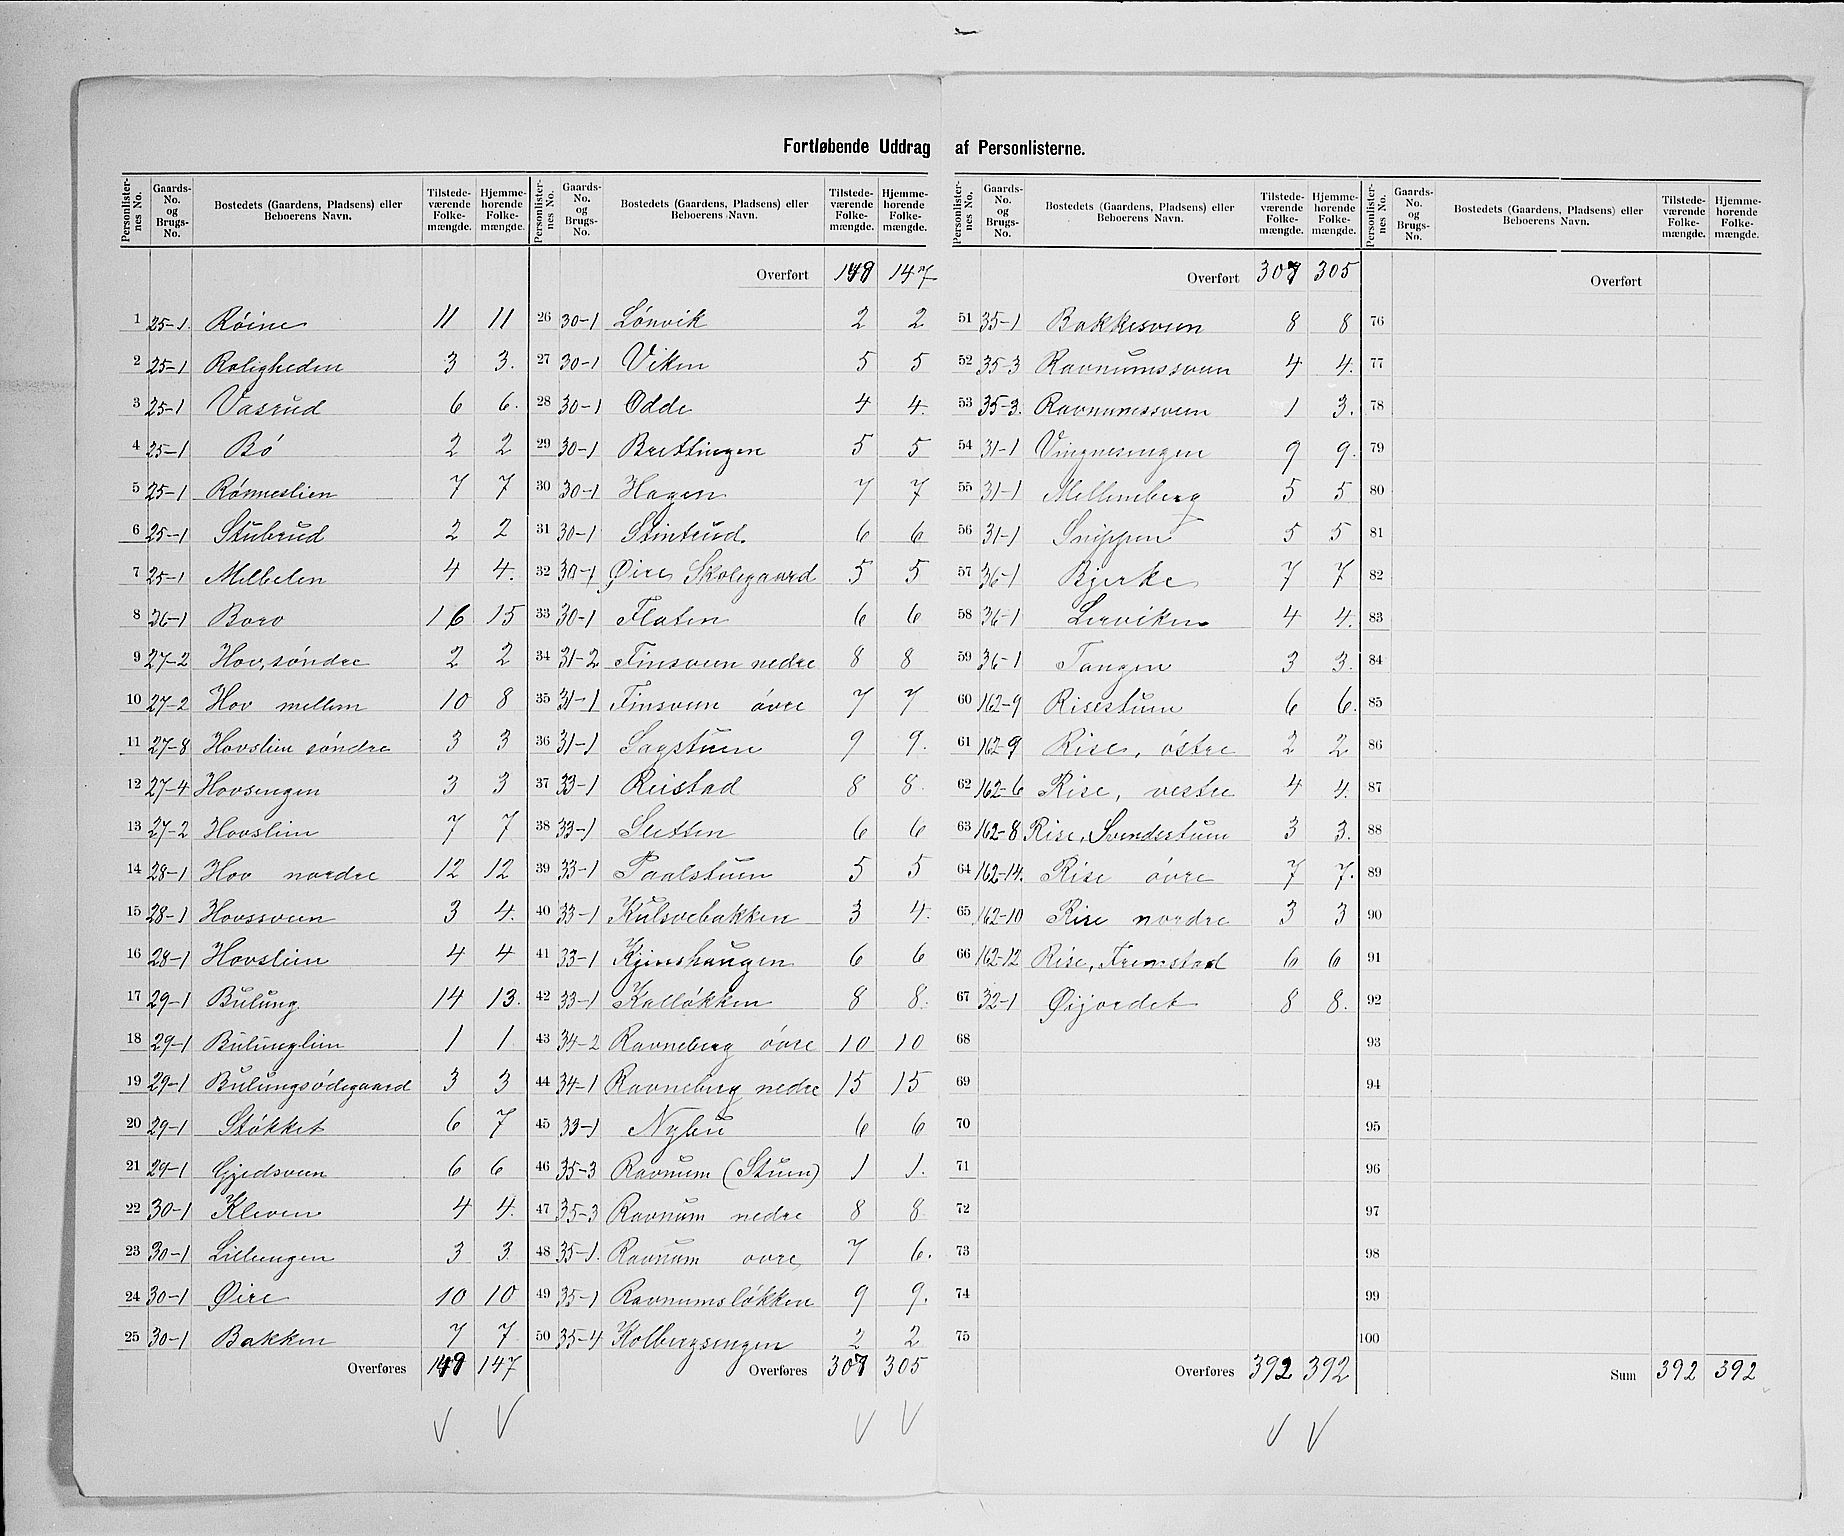 Fortløbende Uddrag af Personlisterne.
Personlister-nes No. Gaards-No. og Brugs-No. Bostedets (Gaardens, Pladsens) eller Beboerens Navn. Tilstede-værende Folke-mængde. Hjemme-hørende Folke-mængde.
1 25-1. Röine 11 11
2 25-1 Roligheden 3 3.
3 25-1 Vasrud 6 6.
4 25-1 Bö 2 2
5 25-1 Rönneslien 7 7
6 25-1 Stubrud 2 2
7 25-1 Melbelen 4 4.
8 26-1 Boro 16 15
9 27-2 Hov, söndre 2 2
10 27-2 Hov mellem 10 8
11 27-8 Hovslien söndre 3 3
12 27-4 Hovsengen 3 3
13 27-2 Hovslien 7 7
14 28-1 Hov nordre 12 12
15 28-1 Hovssveen 3 4.
16 28-1 Hovslien 4 4
17 29-1 Bulung 14 13.
18 29-1 Bulunglien 1 1.
19 29-1 Bulungsödegaard 3 3
20 29-1 Stökket 6 7
21 29-1 Gjedsveen 6 6
22 30-1 Kleven 4 4.
23 30-1 Lilleengen 3 3
24 30-1 Øire 10 10
25 30-1 Bakken 7 7
Overføres 148 147
Personlister-nes No. Gaards-No. og Brugs-No. Bostedets (Gaardens, Pladsens) eller Beboerens Navn. Tilstede-værende Folke-mængde. Hjemme-hørende Folke-mængde.
Overført 148 147
26 30-1 Lönvik 2 2
27 30-1 Viken 5 5
28 30-1 Odde 4 4.
29 30-1 Brettingen 5 5
30 30-1 Hagen 7 7
31 30-1 Stintrud. 6 6
32 30-1 Øire Skolegaard 5 5
33 30-1 Flaten 6 6
34 31-2 Finsveen nedre 8 8
35 31-1 Finsveen övre 7 7
36 31-1 Sagstuen 9 9.
37 33-1 Reistad 8 8.
38 33-1 Sletten 6 6
39 33-1 Paalstuen 5 5
40 33-1 Kulsvebakken 3 4.
41 33-1 Kjineshaugen 6 6
42 33-1 Kallökken 8 8.
43 34-2 Ravneberg övre 10 10
44 34-1 Ravneberg nedre 15 15
45 33-1 Nybu 6 6
46 35-3 Ravnum (Stuen) 1 1.
47 35-3 Ravnum nedre 8 8
48 35-1. Ravnum ovre 7 6.
49 35-1 Ravnumslökken 9 9.
50 35-4 Kolbergsengen 2 2
Overføres 307 305
Personlister-nes No. Gaards-No. og Brugs-No. Bostedets (Gaardens, Pladsens) eller Beboerens Navn. Tilstede-værende Folke-mængde. Hjemme-hørende Folke-mængde.
Overført 307 305
51 35-1 Bakkesveen 8 8
52 35-3 Ravnumssveen 4 4.
53 35-3. Ravnumssveen 1 3.
54 31-1 Vingnesengen 9 9.
55 31-1 Mellemberg 5 5
56 31-1 Snippen 5 5
57 36-1 Bjerke 7 7
58 36-1 Lerviken 4 4.
59 36-1 Tangen 3 3.
60 162-9 Risestuen 6 6.
61 162-9 Rise, östre 2 2
62 162-6 Rise, vestre 4 4.
63 162-8 Rise, Svendsstuen 3 3.
64 162-14. Rise övre 7 7.
65 162-10 Rise nordre 3 3
66 162-12 Rise, Fremstad 6 6
67 32-1 Øijordet 8 8.
68
69
70
71
72
73
74
75
Overføres 392 392
Personlister-nes No. Gaards-No. og Brugs-No. Bostedets (Gaardens, Pladsens) eller Beboerens Navn. Tilstede-værende Folke-mængde. Hjemme-hørende Folke-mængde.
Overført
76
77
78
79
80
81
82
83
84
85
86
87
88
89
90
91
92
93
94
95
96
97
98
99
100
Sum 392 392